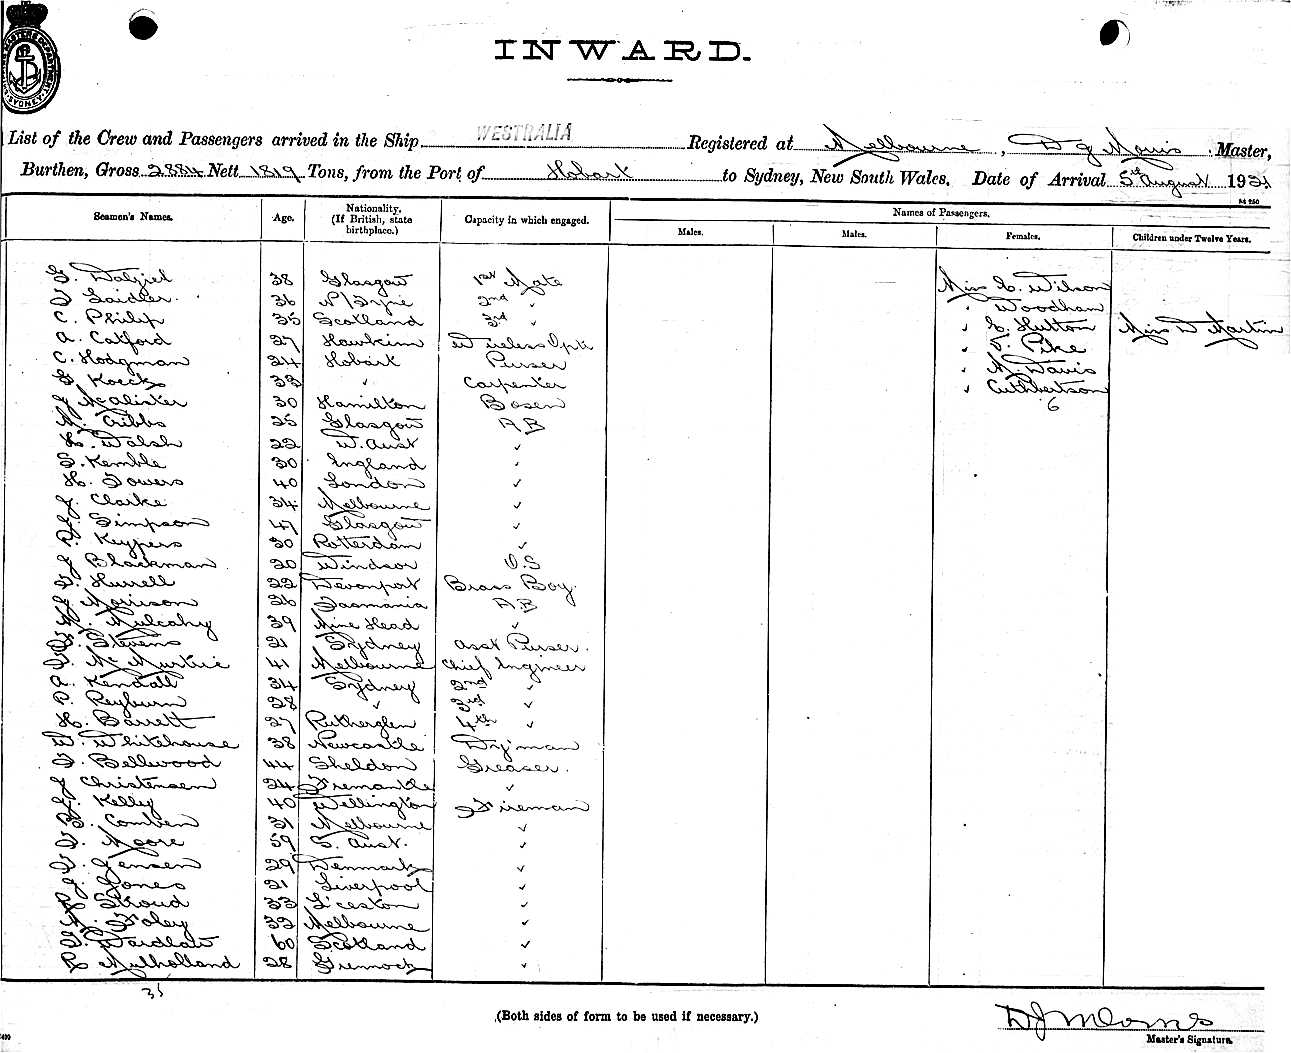 INWARD.
List of the Crew and Passengers arrived in the Ship WESTRALIA Registered at Melbourne, D J Master,
Burthen, Gross 2884 Nett 1819 Tons, from the Port of Hobart to Sydney, New South Wales. Date of Arrival 5th August 1921
Seamen's Names. Age. Nationality. (If British, state birthplace.) Capacity in which engaged. Names of Passengers.
Males. Males. Females. Children under Twelve Years.
G. Dalziel 38 Glasgow 1st Mate Miss C. Wilson
36 N/Tyne 2nd " " Woodham
C. Philip 35 Scotland 3rd " " Hutton Miss D Martin
A. Catford 27 Wireless Optr " Pike
C. Hodgman 24 Hobart Purser " Davis
G. Koeck 32 " Carpenter " Cuthbertson
J McAlister 30 Hamilton Bosen 6
N. Gibbs 25 Glasgow A B
H. Walsh 22 W. Aust "
S. Kemble 30 England "
H. Sowers 40 London "
J. Clarke 34 Melbourne "
J. Simpson 47 Glasgow "
Keypers 30 Rotterdam "
J Blackman 20 Windsor O.S
Hurrell 22 Devonport Brass Boy.
J Morrison 26 Tasmania A B
M. Mulcahy 39 Mine Head "
Stevens 21 Sydney Asst Purser.
McMurtrie 41 Melbourne Chief Engineer
A. Kendall 34 Sydney 2nd "
P. Reyburn 28 " 3rd "
H. Barrett 27 Rutherglen 4th "
W. Whitehouse 38 Newcastle Dy'man
Bellwood 44 Sheldon Greaser.
J Christensen 24 Fremantle "
J. Kelley 40 Wellington Fireman
B. Comben 31 Melbourne "
Moore 59 S. Aust. "
Jensen 29 Denmark "
J. Jones 21 Liverpool "
Stroud 33 L'ceston "
M. Foley 32 Melbourne "
Wardlaw 60 Scotland "
R Mulholland 28 Greenock "
35
(Both sides of form to be used if necessary.)
Master's Signature.